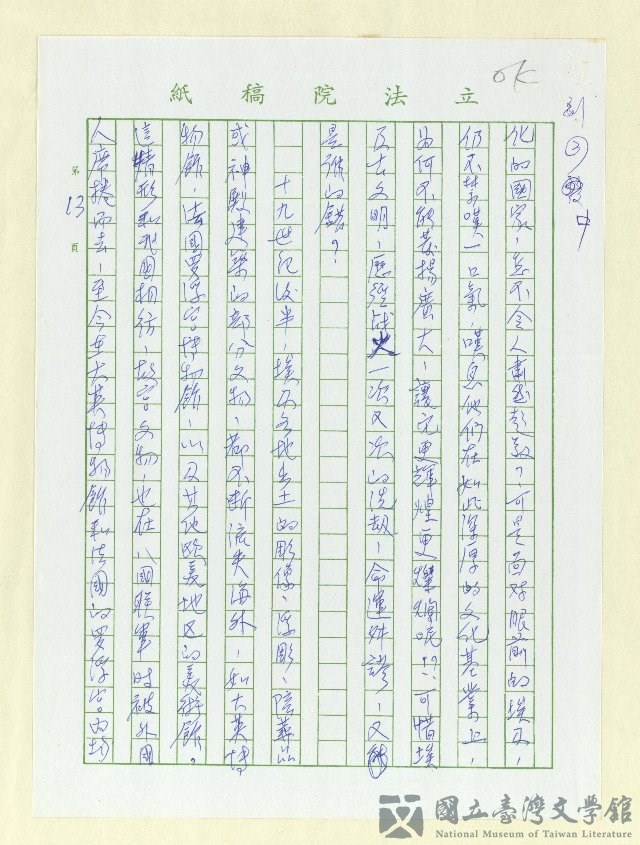 OK
刻③
中
立法院稿紙
第13頁
化的國家,怎不令人肅然起敬?可是面對眼前的埃及,
仍不禁嘆一口氣,嘆息他們在如此深厚的文化基業上,
為何不能發揚廣大,讓它更輝煌更燦爛呢??可惜埃
及古文明,歷經战火一次又次的洗劫,命運舛謬,又能
是誰的錯?
十九世紀後半,埃及各地出土的彫像、浮彫、陪葬品
或神殿建築的部分文物,都不斷流失海外,如大英博
物館,法國羅浮宮博物館,以及其他歐美地区的美術館。
這情形和我國相彷,故宮文物,也在八國聯軍時被外國
人席捲而去,至今在大英博物館和法國的羅浮宮內均
國立臺灣文學館
National Museum of Taiwan Literature